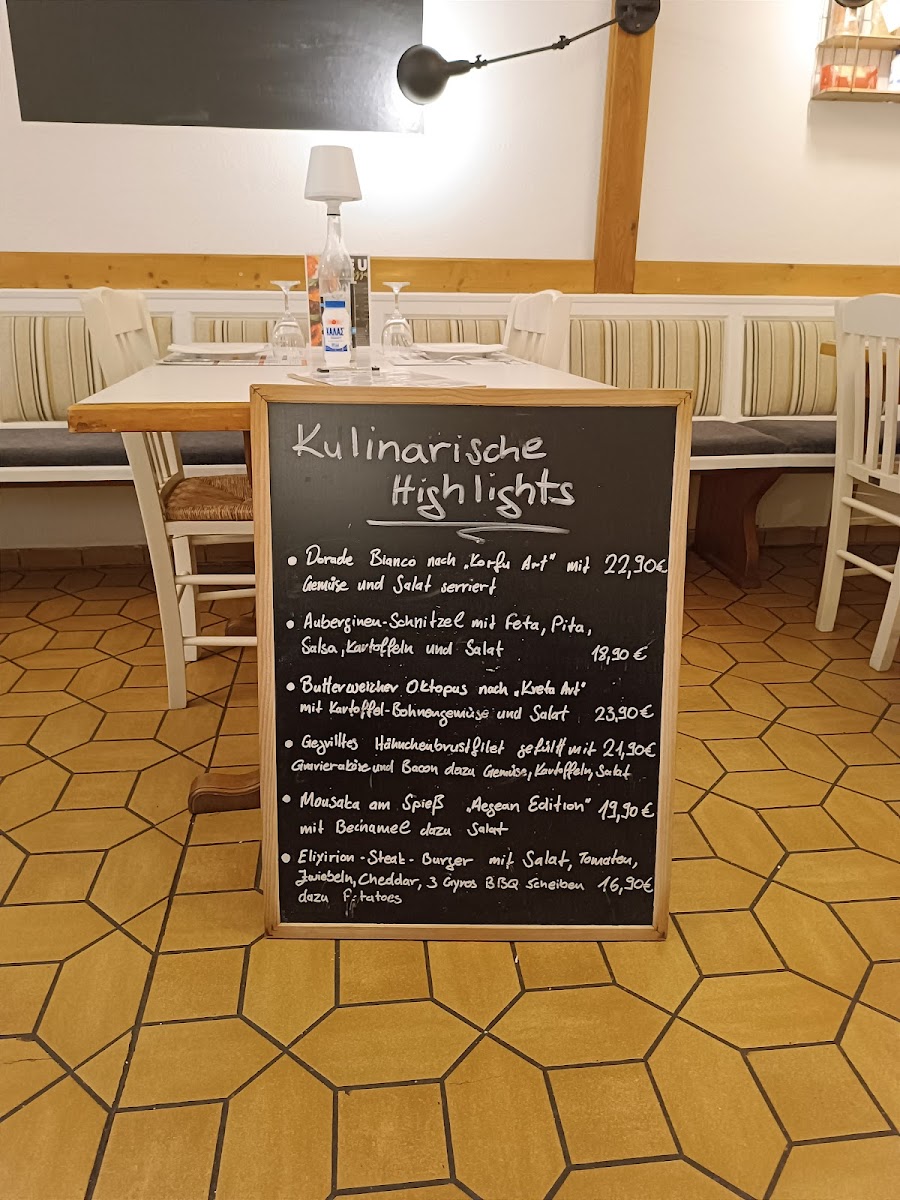 Kulinarische
Highlights
• Dorade Bianco nach „Korfu Art" mit 22,90€
Gemüse und Salat serviert
• Auberginen-Schnitzel mit Feta, Pita,
Salsa, Kartoffeln und Salat 18,90€
• Butterweicher Oktopus nach „Kreta Art"
mit Kartoffel-Bohnengemüse und Salat 23,90€
• Gegrilltes Hähnchenbrustfilet gefüllt mit 21,90€
Gravierakäse und Bacon dazu Gemüse, Kartoffeln, Salat
• Mousaka am Spieß „Aegean Edition" 19,90€
mit Bechamel dazu Salat
• Elixirion-Steak-Burger mit Salat, Tomaten,
Zwiebeln, Cheddar, 3 Gyros BBQ Scheiben 16,90€
dazu Potatoes
ΚΑΛΑΣ